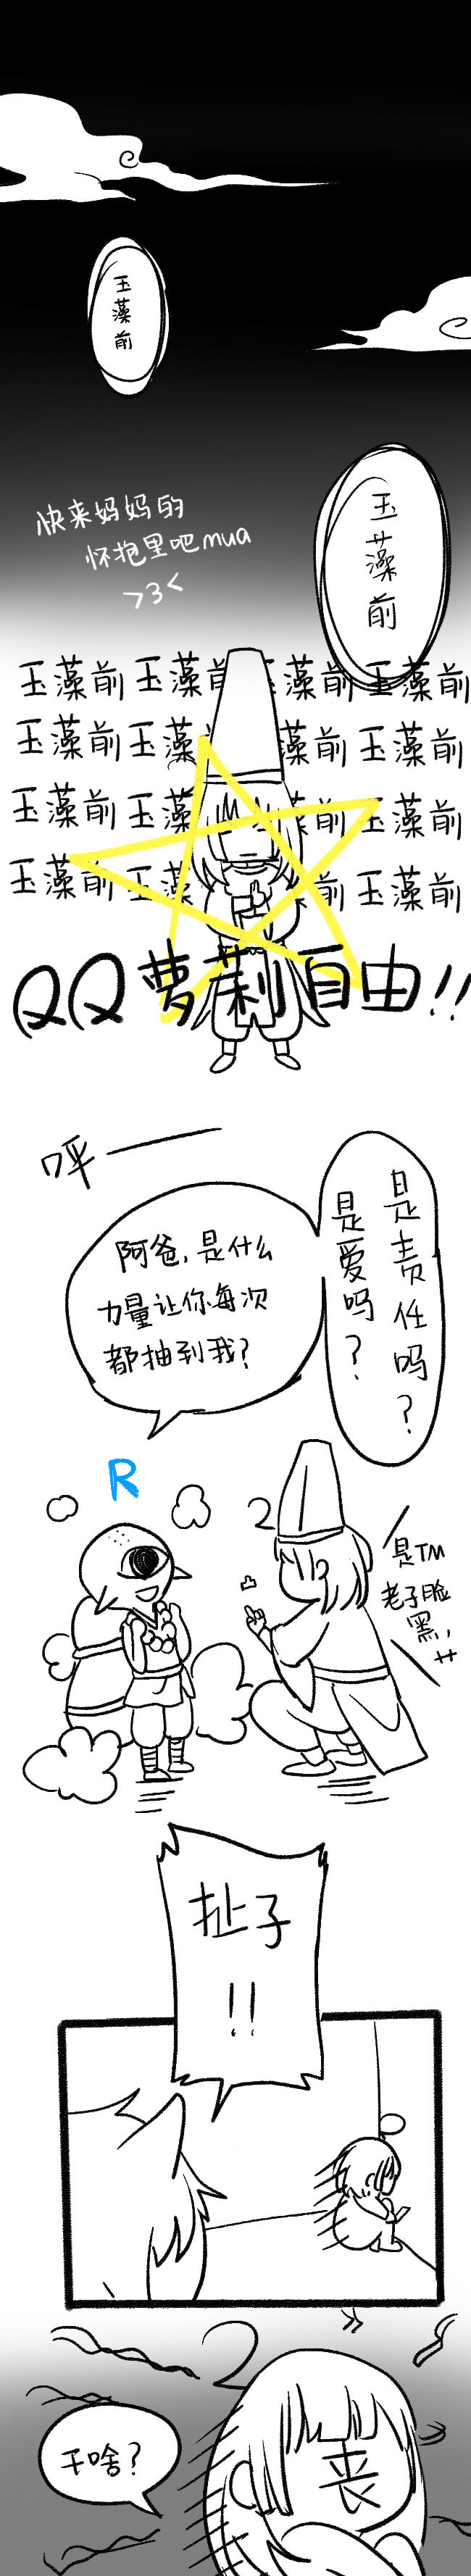 玉藻前
玉藻前
快来妈妈的
怀抱里吧mua
>3<
玉藻前玉藻前玉藻前玉藻前
玉藻前玉藻前玉藻前玉藻前
玉藻前玉藻前玉藻前玉藻前
玉藻前玉藻前玉藻前玉藻前
QQ萝莉自由!!
呼——
是责任吗?
是爱吗?
阿爸,是什么
力量让你每次
都抽到我?
R
是TM
老子脸
黑,
艹
扯子
!!
干啥?
丧